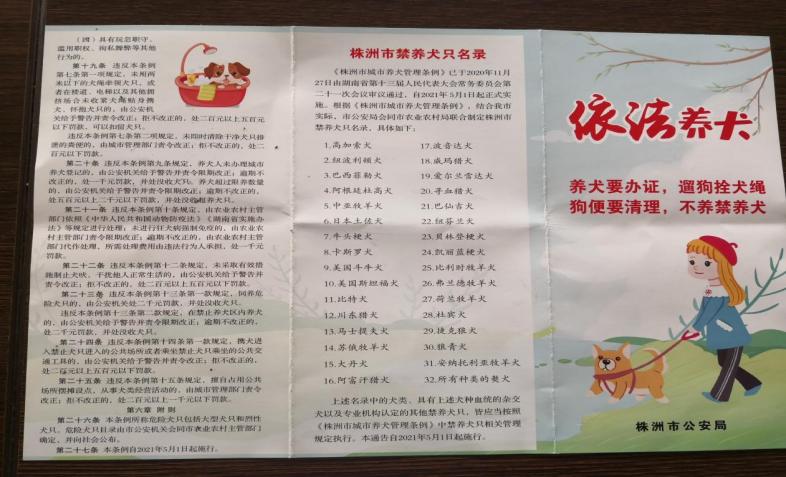 （四）具有玩忽职守、
滥用职权、徇私舞弊等其他
行为的。
第十九条 违反本条例
第七条第一项规定，未用两
米以下的犬绳牵领犬只，或
者在楼道、电梯以及其他拥
挤场合未收紧犬绳贴身携
犬、怀抱犬只的，由公安机
关给予警告并责令改正；拒不改正的，处二百元以上五百元
以下罚款，可以扣留犬只。
违反本条例第七条第二项规定，未即时清除干净犬只排
泄的粪便的，由城市管理部门责令改正；拒不改正的，处二
百元以下罚款。
第二十条 违反本条例第九条规定，养犬人未办理城市
养犬登记的，由公安机关给予警告并责令限期改正；逾期不
改正的，处一千元罚款，并处没收犬只。养犬超过限养数量
的，由公安机关给予警告并责令限期改正；逾期不改正的，
处五百元以上二千元以下罚款，并处没收超养犬只。
第二十一条 违反本条例第十条规定，由农业农村主管
部门依照《中华人民共和国动物防疫法》《湖南省实施办
法》等规定进行处理；未进行狂犬病强制免疫的，由农业农
村主管部门责令限期改正；逾期不改正的，由农业农村主管
部门代作处理，所需处理费用由违法行为人承担，处一千元
罚款。
第二十二条 违反本条例第十二条规定，未采取有效措
施制止犬吠，干扰他人正常生活的，由公安机关给予警告并
责令改正；拒不改正的，处二百元以上五百元以下罚款。
第二十三条 违反本条例第十三条第一款规定，饲养危
险犬只的，由公安机关处二千元罚款，并处没收犬只。
违反本条例第十三条第二款规定，在禁止养犬区内养犬
的，由公安机关给予警告并责令限期改正；逾期不改正的，
处二千元罚款，并处没收犬只。
第二十四条 违反本条例第十四条第一款规定，携犬进
入禁止犬只进入的公共场所或者乘坐禁止犬只乘坐的公共交
通工具的，由公安机关给予警告并责令改正；拒不改正的，
处二百元以上五百元以下罚款。
第二十五条 违反本条例第十五条规定，擅自占用公共
场所摆摊设点，从事犬类经营活动的，由城市管理部门责令
改正；拒不改正的，处二百元以上一千元以下罚款。
第六章 附 则
第二十六条 本条例所称危险犬只包括大型犬只和烈性
犬只。危险犬只目录由市公安机关会同市农业农村主管部门
确定，并向社会公布。
第二十七条 本条例自2021年5月1日起施行。
株洲市禁养犬只名录
《株洲市城市养犬管理条例》已于2020年11月
27日由湖南省第十三届人民代表大会常务委员会第
二十一次会议审议通过，自2021年5月1日起正式实
施。根据《株洲市城市养犬管理条例》，结合我市
实际，市公安局会同市农业农村局联合制定株洲市
禁养犬只名录，具体如下：
1.高加索犬 17.波音达犬
2.纽波利顿犬 18.威玛猎犬
3.巴西菲勒犬 19.爱尔兰雪达犬
4.阿根廷杜高犬 20.寻血猎犬
5.中亚牧羊犬 21.巴仙吉犬
6.日本土佐犬 22.纽芬兰犬
7.牛头梗犬 23.贝林登梗犬
8.卡斯罗犬 24.凯丽蓝梗犬
9.美国斗牛犬 25.比利时牧羊犬
10.美国斯坦福犬 26.弗兰德牧羊犬
11.比特犬 27.荷兰牧羊犬
12.川东猎犬 28.杜宾犬
13.马士提夫犬 29.捷克狼犬
14.苏俄牧羊犬 30.狼青犬
15.大丹犬 31.安纳托利亚牧羊犬
16.阿富汗猎犬 32.所有种类的獒犬
上述名录中的犬类、具有上述犬种血统的杂交
犬以及专业机构认定的其他禁养犬只，皆应当按照
《株洲市城市养犬管理条例》中禁养犬只相关管理
规定执行。本通告自2021年5月1日起施行。
依法养犬
养犬要办证，遛狗拴犬绳
狗便要清理，不养禁养犬
株洲市公安局